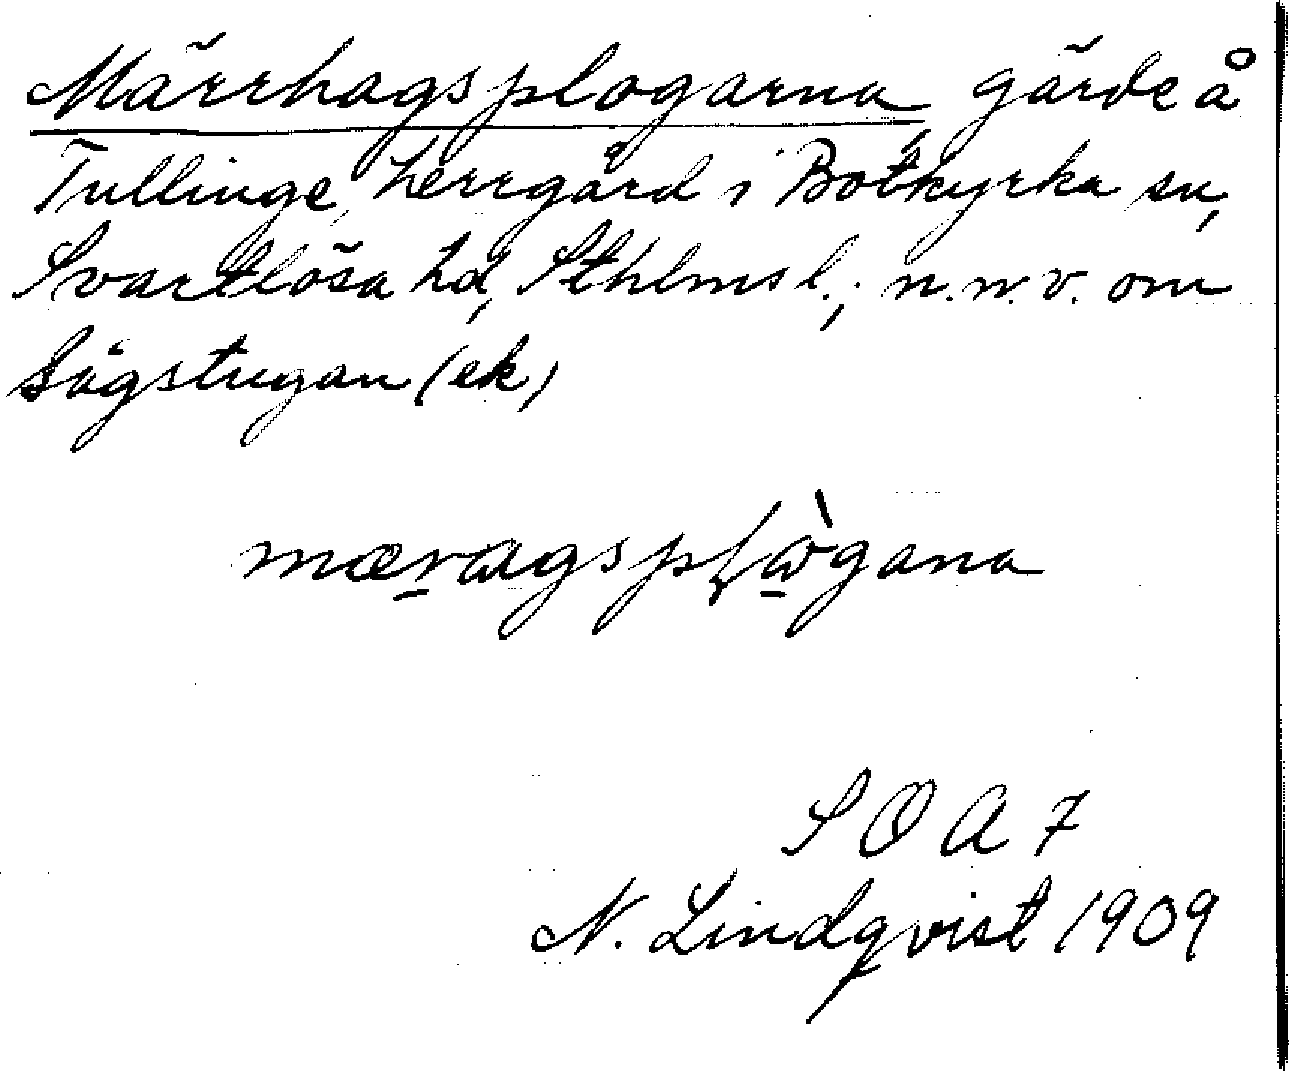 Märrhagsplogarna gärde å
Tullinge, herrgård i Botkyrka sn,
Svartlösa hd, Sthlms l.; n.n.v. om
Sågstugan (ek)
mæragsplωgana
S O A 7
N. Lindqvist 1909